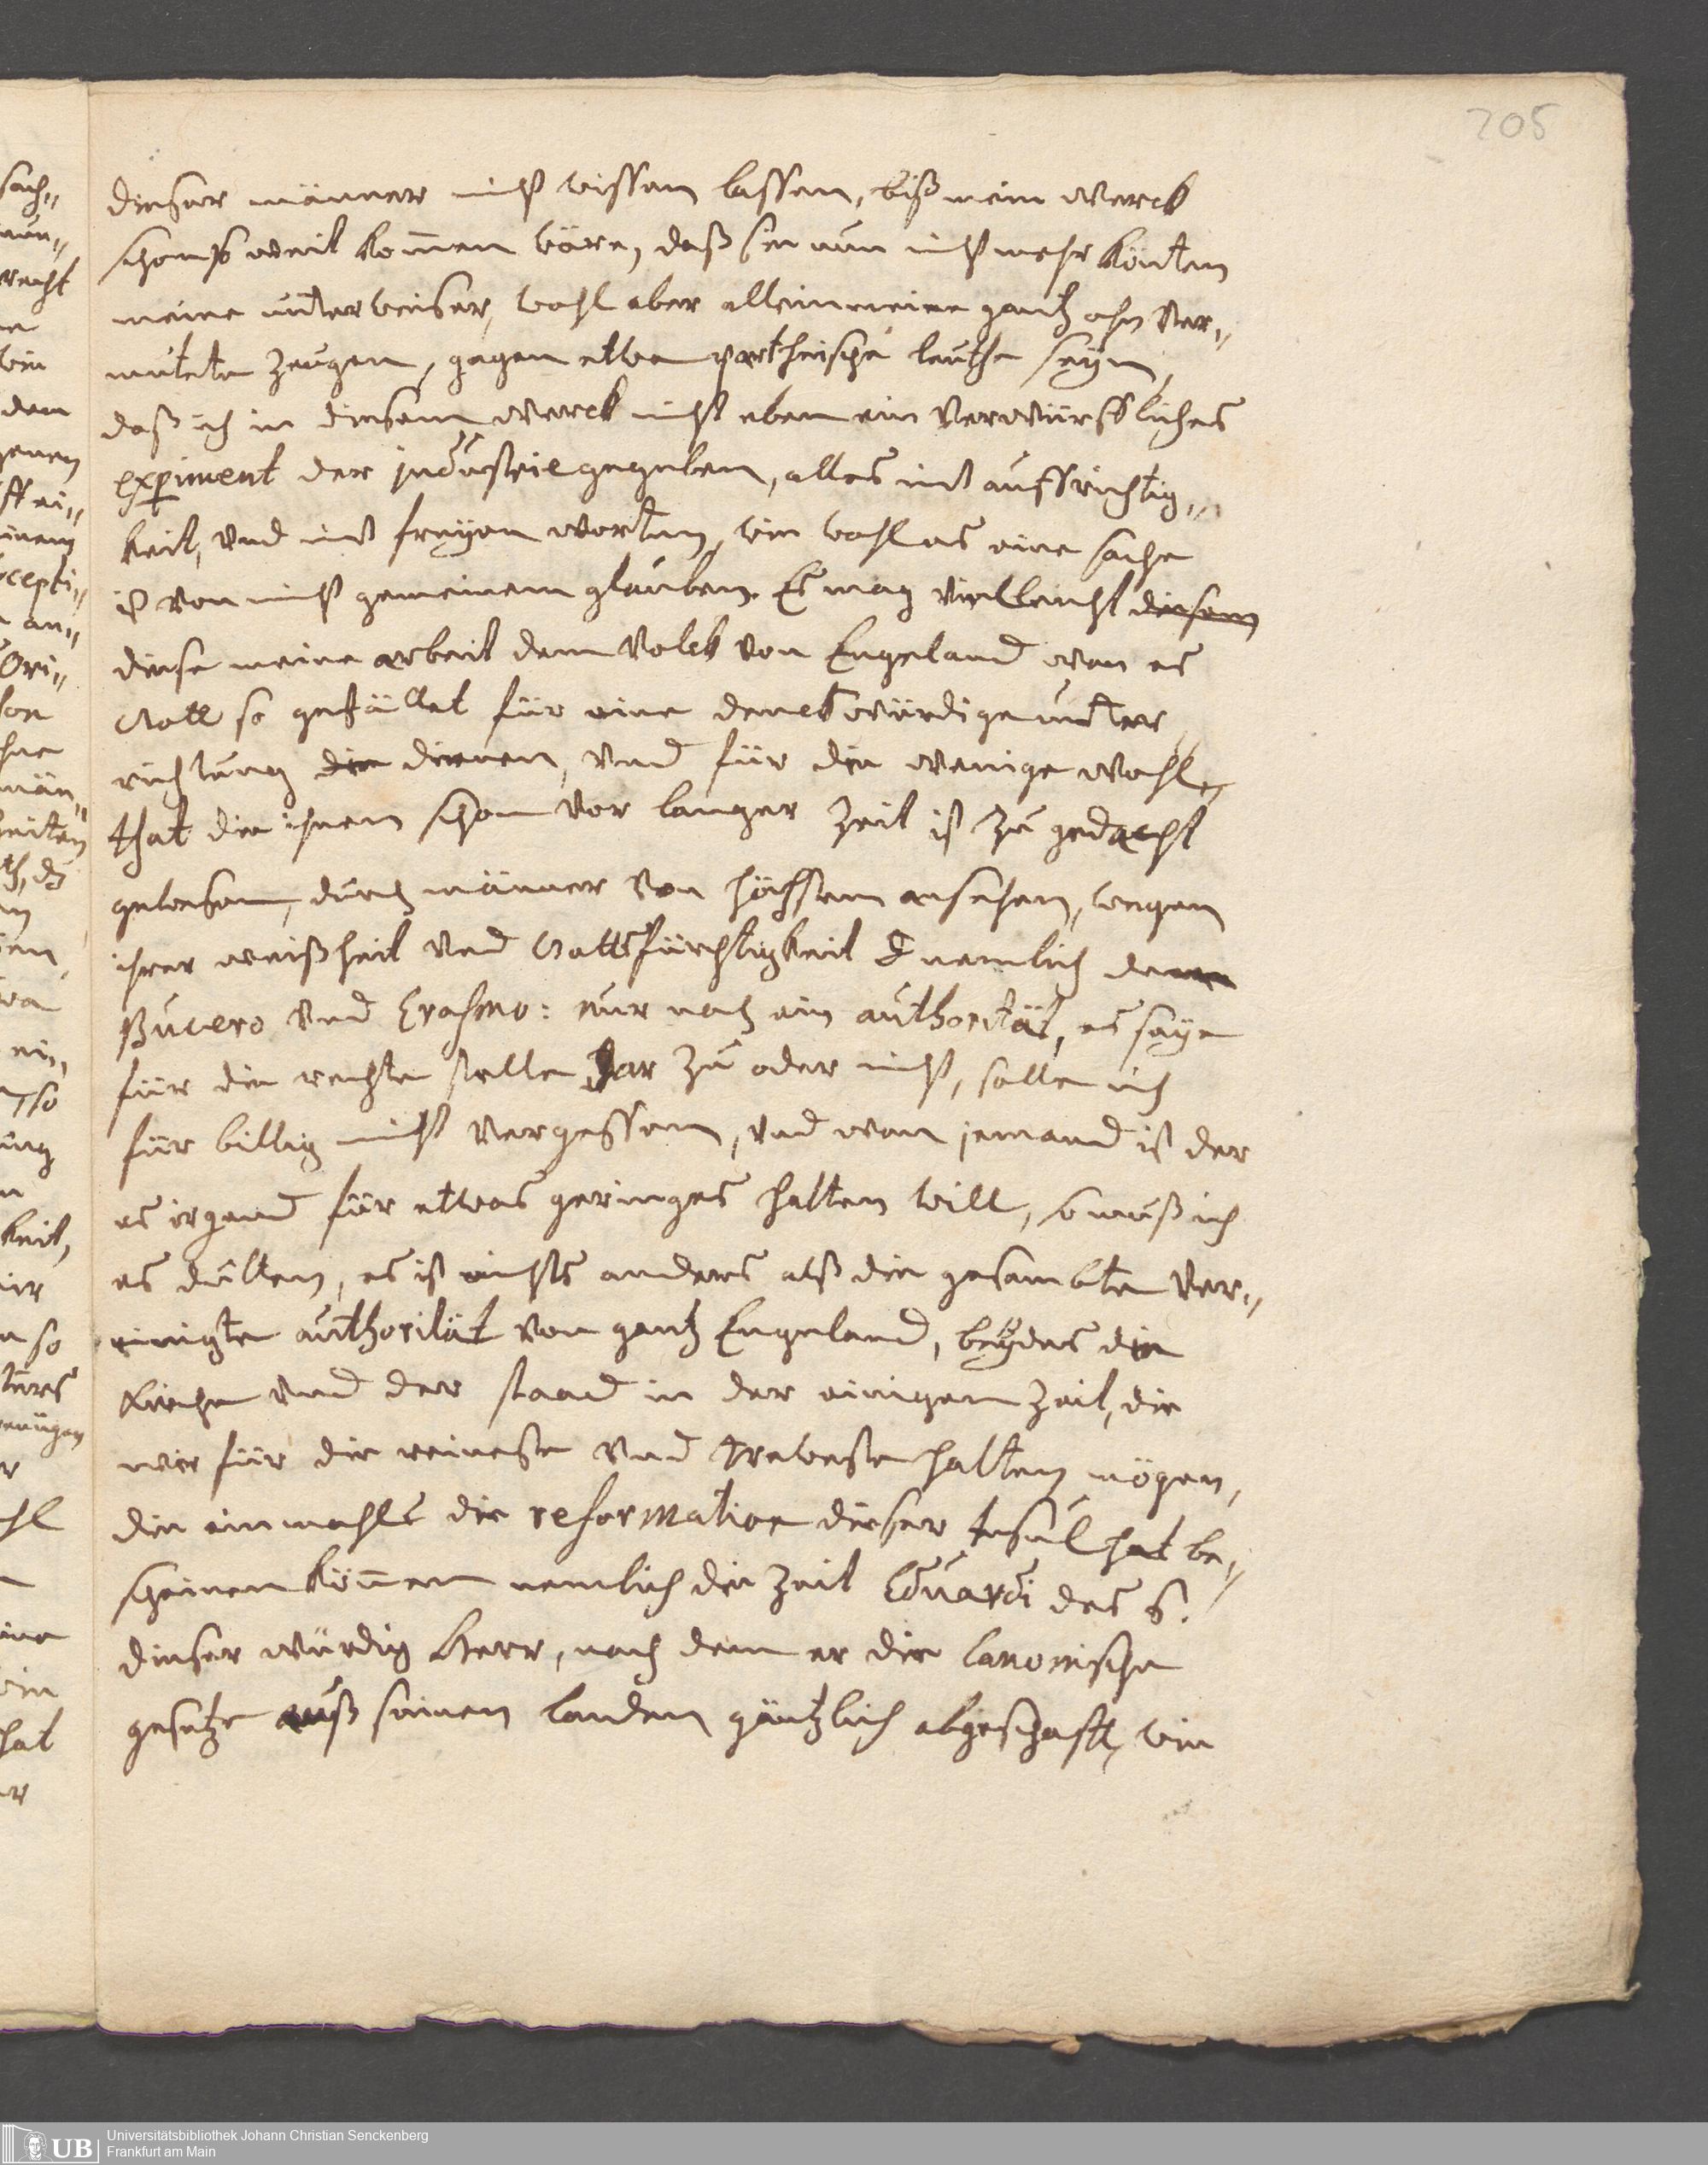 205
dieser männer nicht wissen lassen, biß mein werck
schon so weit kom̄en wäre, daß sie nun nicht mehr könten
meine unterweiser, wohl aber allein meine gantz ohn ver„
mutete zeugen, gegen etwa partheische leuthe seyn,
daß ich in diesem werck nicht eben ein verwürffliches
experiment der industrie gegeben, alles mit auffrichtig„
keit, und mit freyen worten, wie wohl es eine sache
ist von nicht gemeinem glauben. Es mag vielleicht diesem
diese meine arbeit dem volck von Engeland wan es
Gott so gefället für eine denckwürdige unter
richtung die dienen, und für die wenige wohl„
that die ihnen schon vor langer zeit ist zu gedacht
gewesen, durch männer von höchstem ansehen, wegen
ihrer weißheit und Gottsfürchtigkeit nemlich denen
Bucero und Erasmo: nur noch ein authorität, es seye
für die rechte stelle dar zu oder nicht, solle ich
für billig nicht vergessen, und wan jemand ist der
es irgend für etwas geringes halten will, so muß ich
es dulten, es ist nichts anders alß die gesambte ver„
einigte authorität von gantz Engeland, beydes die
Kirche und der staad in der einigen zeit, die
wir für die reineste und treweste halten mögen,
die einmahls die reformation dieser Insul hat be„
scheinen kön̄en nemlich die zeit Eduardi des 6.
dieser würdig Herr, nach dem er die Canonische
gesetze auß seinen landen gäntzlich abgeschafft, wie
UB
Universitätsbibliothek Johann Christian Senckenberg
Frankfurt am Main